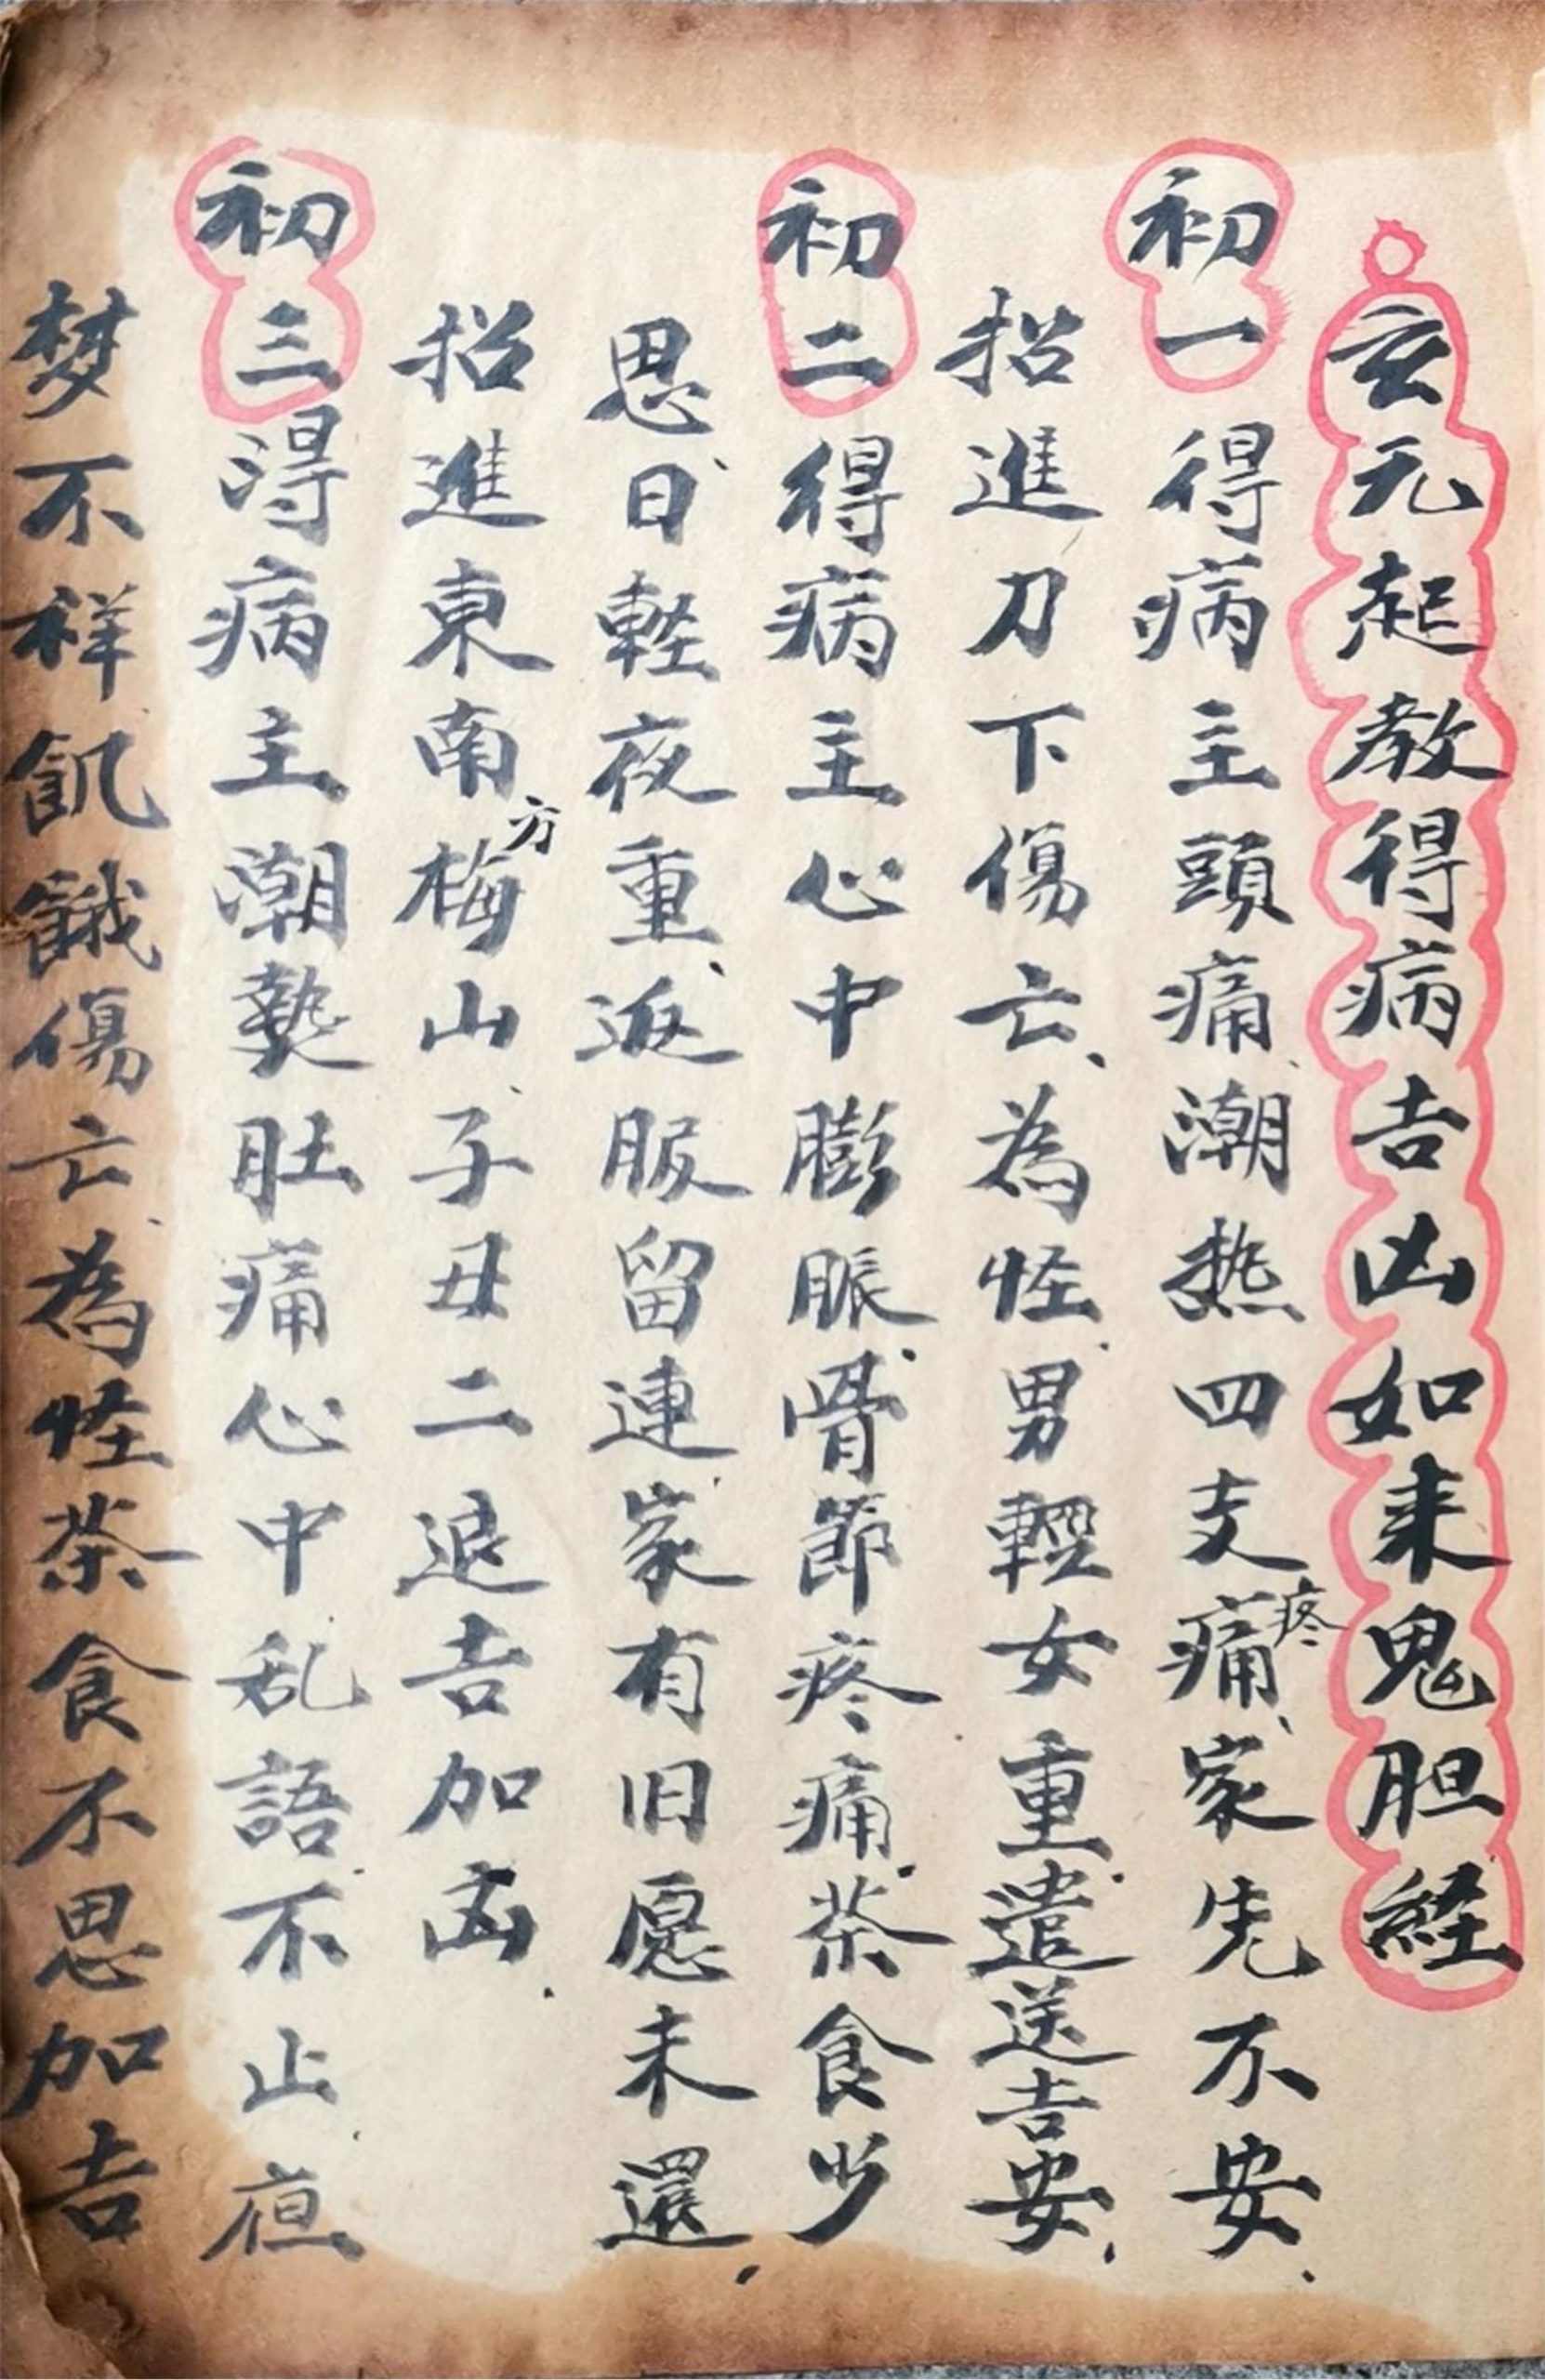 玄元起教得病吉凶如来鬼胆経
初一得病主頭痛潮热四支疼痛家先不安
招進刀下傷亡為怪男輕女重遣送吉安
初二得病主心中膨脹骨節疼痛茶食少
思日軽夜重返服留連家有旧愿未還
招進東南方梅山子母二退吉加凶
初三得病主潮熱肚痛心中乱語不止夜
梦不祥飢餓傷亡為怪茶食不思加吉